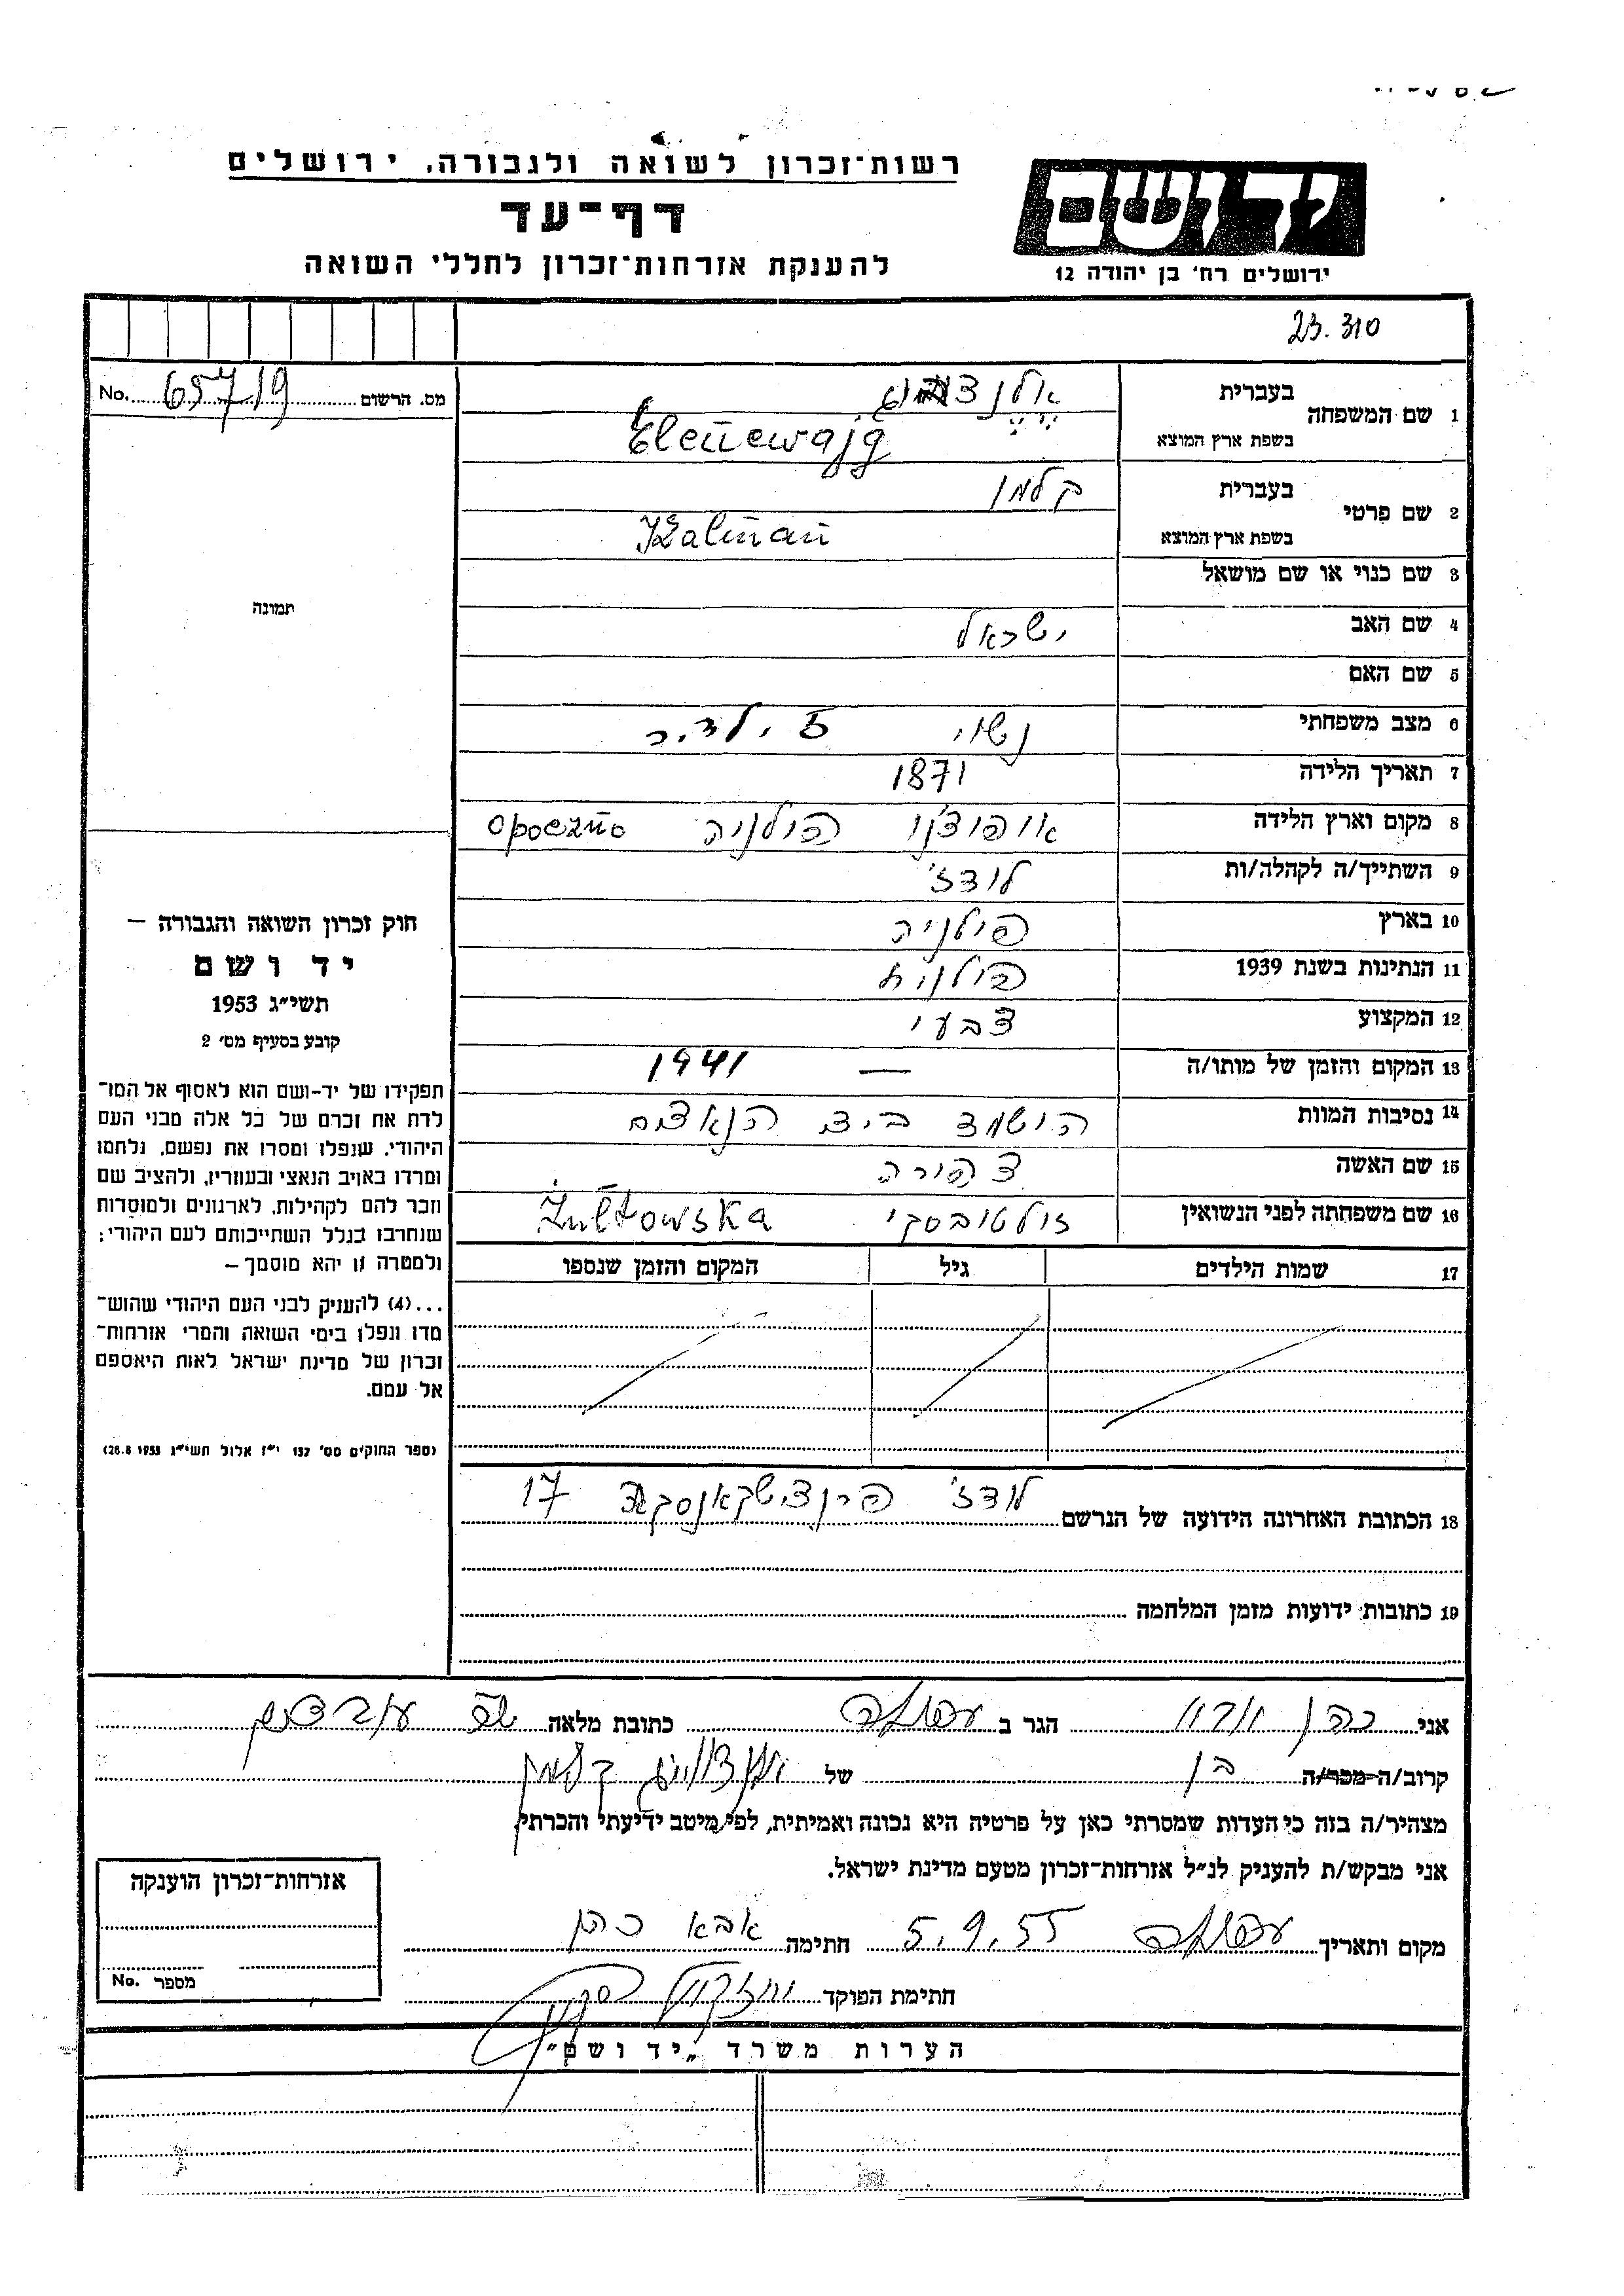 רשות־זכרון לשואה ולגבורה, ירושלים
דף־עד
להענקת אזרחות־זכרון לחללי השואה
יד ושם
ירושלים רח' בן יהודה 12
23.310
מס. הרשום 65719 No.
1 שם המשפחה
בעברית
בשפת ארץ המוצא
2 שם פרטי
בעברית קלמן
בשפת ארץ המוצא Kalman
3 שם כנוי או שם מושאל
4 שם האב ישראל
5 שם האם
6 מצב משפחתי נשוי 5 ילדים
7 תאריך הלידה 1871
8 מקום וארץ הלידה אופוצנו פולניה Opoczno
9 השתייך/ה לקהלה/ות לודז'
10 בארץ פולניה
11 הנתינות בשנת 1939 פולנית
12 המקצוע צבעי
13 המקום והזמן של מותו/ה — 1941
14 נסיבות המוות הושמד ביד הנאצים
15 שם האשה צפורה
16 שם משפחתה לפני הנשואין זולטובסקי Żułtowska
17 שמות הילדים גיל המקום והזמן שנספו
18 הכתובת האחרונה הידועה של הנרשם לודז' 17
19 כתובות ידועות מזמן המלחמה
תמונה
חוק זכרון השואה והגבורה —
יד ושם
תשי"ג 1953
קובע בסעיף מס' 2
תפקידו של יד-ושם הוא לאסוף אל המו־
לדת את זכרם של כל אלה מבני העם
היהודי, שנפלו ומסרו את נפשם, נלחמו
ומרדו באויב הנאצי ובעוזריו, ולהציב שם
וזכר להם לקהילות, לארגונים ולמוסדות
שנחרבו בגלל השתייכותם לעם היהודי;
ולמטרה זו יהא מוסמך —
...(4) להעניק לבני העם היהודי שהוש־
מדו ונפלו בימי השואה והמרי אזרחות־
זכרון של מדינת ישראל לאות היאספם
אל עמם.
(ספר החוקים מס' 132 י"ז אלול תשי"ג 28.8.1953)
אני כהן הגר ב עפולה כתובת מלאה
קרוב/ה מכר/ה בן של קלמן
מצהיר/ה בזה כי העדות שמסרתי כאן על פרטיה היא נכונה ואמיתית, לפי מיטב ידיעתי והכרתי.
אני מבקש/ת להעניק לנ"ל אזרחות־זכרון מטעם מדינת ישראל.
מקום ותאריך עפולה 5.9.55 חתימה אבא כהן
חתימת הפוקד
אזרחות־זכרון הוענקה
מספר No.
הערות משרד „יד ושם"